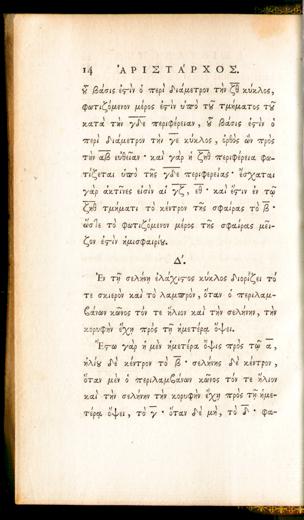 14 ἈΡΙΣΤΑΡΧΟΣ.
οὗ βάσις ἐστὶν ὁ περὶ διάμετρον τὴν ζθ κύκλος,
φωτιζόμενον μέρος ἐστὶν ὑπὸ τοῦ τμήματος τοῦ
κατὰ τὴν γδε περιφέρειαν, οὗ βάσις ἐστὶν ὁ
περὶ διάμετρον τὴν γε κύκλος, ὀρθὸς ὢν πρὸς
τὴν αβ εὐθεῖαν· καὶ γὰρ ἡ ζηθ περιφέρεια φω-
τίζεται ὑπὸ τῆς γδε περιφερείας· ἔσχαται
γὰρ ἀκτῖνές εἰσιν αἱ γζ, εθ· καὶ ἔστιν ἐν τῷ
ζηθ τμήματι τὸ κέντρον τῆς σφαίρας τὸ β·
ὥστε τὸ φωτιζόμενον μέρος τῆς σφαίρας μεῖ-
ζον ἐστὶν ἡμισφαιρίου.
Δ´.
Ἐν τῇ σελήνῃ ἐλάχιστος κύκλος διορίζει τό
τε σκιερὸν καὶ τὸ λαμπρὸν, ὅταν ὁ περιλαμ-
βάνων κῶνος τόν τε ἥλιον καὶ τὴν σελήνην, τὴν
κορυφὴν ἔχῃ πρὸς τῇ ἡμετέρᾳ ὄψει.
Ἔστω γὰρ ἡ μὲν ἡμετέρα ὄψις πρὸς τῷ α,
ἡλίου δὲ κέντρον τὸ β· σελήνης δὲ κέντρον,
ὅταν μὲν ὁ περιλαμβάνων κῶνος τόν τε ἥλιον
καὶ τὴν σελήνην τὴν κορυφὴν ἔχῃ πρὸς τῇ ἡμε-
τέρᾳ ὄψει, τὸ γ· ὅταν δὲ μὴ, τὸ δ· φα-